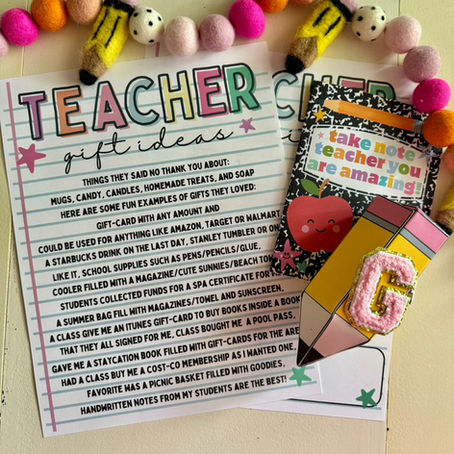 TEACHER
gift ideas
THINGS THEY SAID NO THANK YOU ABOUT:
MUGS, CANDY, CANDLES, HOMEMADE TREATS, AND SOAP
HERE ARE SOME FUN EXAMPLES OF GIFTS THEY LOVED:
GIFT-CARD WITH ANY AMOUNT AND
COULD BE USED FOR ANYTHING LIKE AMAZON, TARGET OR WALMART
A STARBUCKS DRINK ON THE LAST DAY, STANLEY TUMBLER OR ON
LIKE IT, SCHOOL SUPPLIES SUCH AS PENS/PENCILS/GLUE,
COOLER FILLED WITH A MAGAZINE/CUTE SUNNIES/BEACH TO
STUDENTS COLLECTED FUNDS FOR A SPA CERTIFICATE FO
A SUMMER BAG FILL WITH MAGAZINES/TOWEL AND SUNSCREEN,
A CLASS GIVE ME AN ITUNES GIFT-CARD TO BUY BOOKS INSIDE A BOOK
THAT THEY ALL SIGNED FOR ME, CLASS BOUGHT ME A POOL PASS,
GAVE ME A STAYCATION BOOK FILLED WITH GIFT-CARDS FOR THE ARE
HAD A CLASS BUY ME A COST-CO MEMBERSHIP AS I WANTED ONE,
FAVORITE WAS A PICNIC BASKET FILLED WITH GOODIES,
HANDWRITTEN NOTES FROM MY STUDENTS ARE THE BEST!
take note
teacher you
are amazing!
G